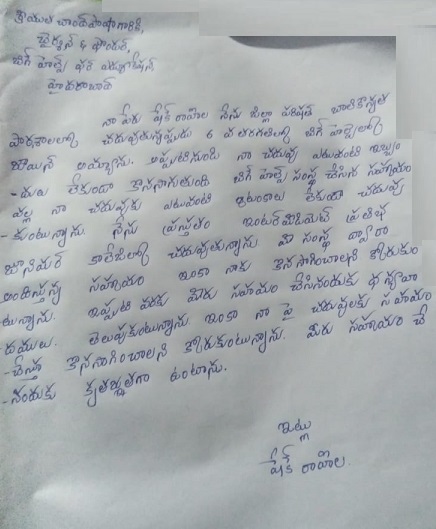 శ్రీయుత చాంద్ పాషా గారికి,
చైర్మన్ & ఫౌండర్,
బిగ్ హెల్ప్ ఫర్ ఎడ్యుకేషన్
హైదరాబాద్
నా పేరు షేక్ రాహిల నేను జిల్లా పరిషత్ బాలికోన్నత
పాఠశాలలో చదువుతున్నప్పుడు 6 వ తరగతిలో బిగ్ హెల్ప్‌లో
జాయిన్ అయ్యాను. అప్పటినుండి నా చదువు ఎటువంటి ఇబ్బం
-దులు లేకుండా కొనసాగుతుంది బిగ్ హెల్ప్ సంస్థ చేసిన సహాయం
వల్ల నా చదువుకు ఎటువంటి ఆటంకాలు లేకుండా చదువు
-కుంటున్నాను. నేను ప్రస్తుతం ఇంటర్‌మీడియెట్ ప్రతిభ
జూనియర్ కాలేజిలో చదువుతున్నాను. మీ సంస్థ ద్వారా
అందిస్తున్న సహాయం ఇంకా నాకు కొనసాగించాలని కోరుకుం
టున్నాను. ఇప్పటి వరకు మీరు సహాయం చేసినందుకు ధన్యవా
దములు. తెలుపుకుంటున్నాను. ఇంకా నా పై చదువులకు సహాయం
-చేస్తూ కొనసాగించాలని కోరుకుంటున్నాను. మీరు సహాయం చే
-సినందుకు కృతజ్ఞతగా ఉంటాను.
ఇట్లు
షేక్ రాహిల.